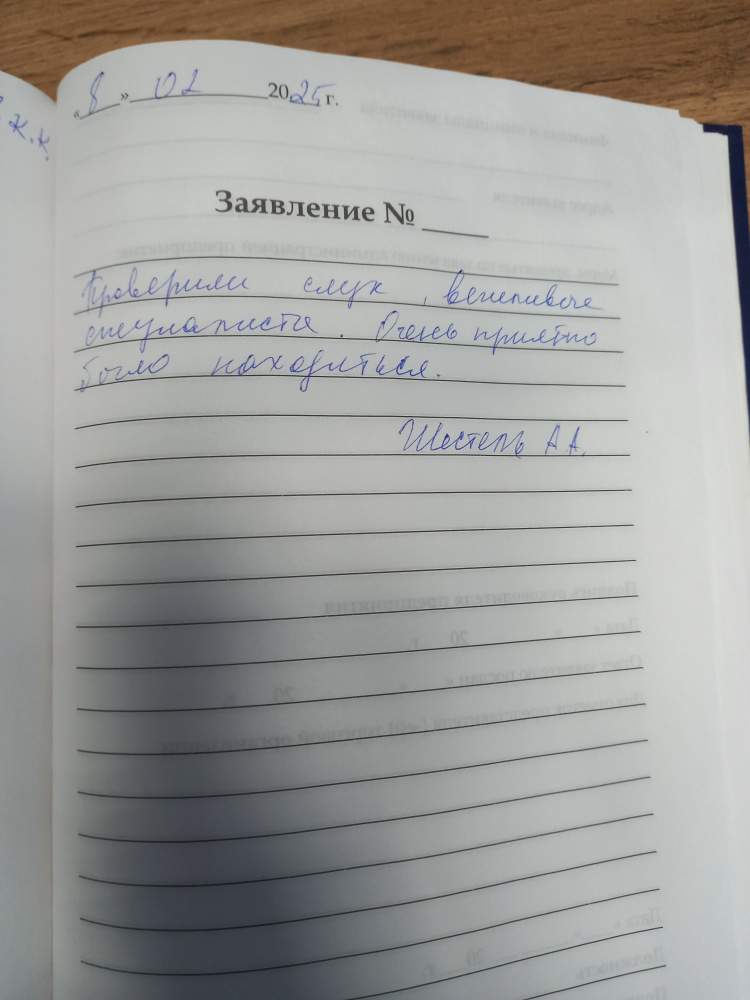 к.к.
«8» 02 2025 г.
Заявление №
Проверили слух, вежливые
специалисты. Очень приятно
было находиться.
А А.